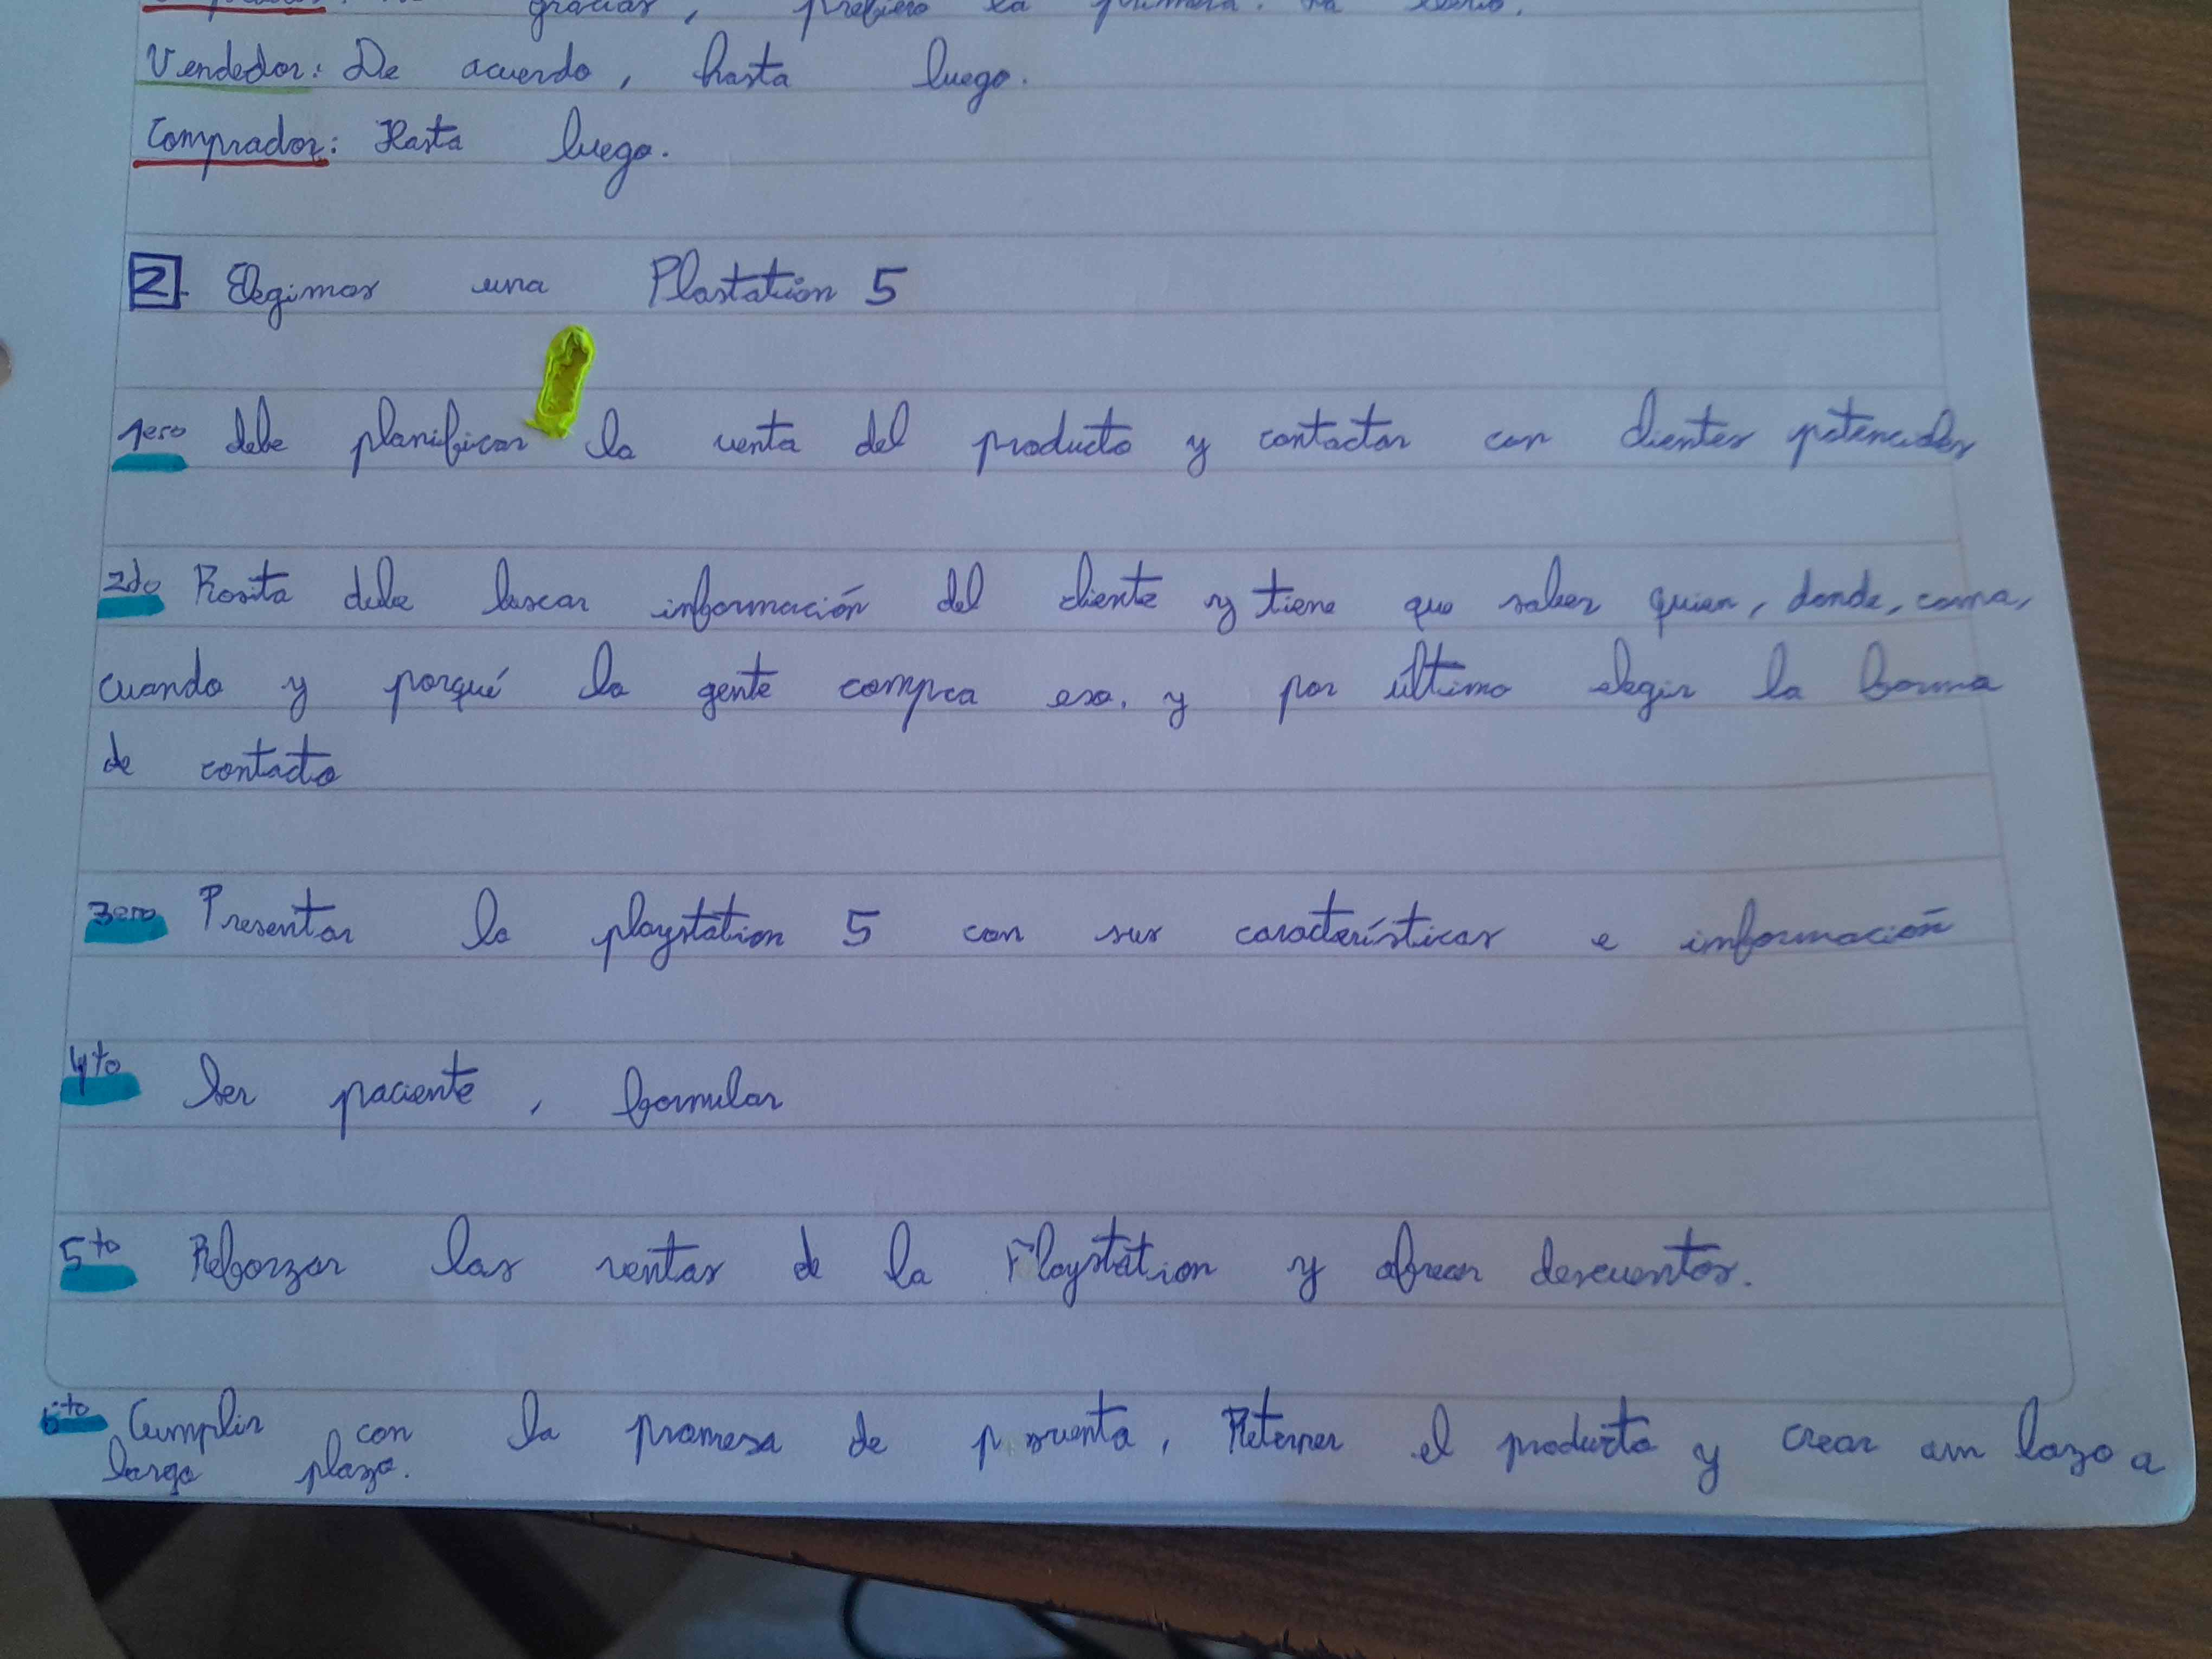 gracias, prefiero la primera.
Vendedor: De acuerdo, hasta luego.
Comprador: Hasta luego.
2. Elegimos una Plastation 5
1ero debe planificar la venta del producto y contactar con clientes potenciales
2do Rosita debe buscar información del cliente y tiene que saber quien, donde, como,
cuando y porqué la gente compra eso. y por último elegir la forma
de contacto
3ero Presentar la playstation 5 con sus características e información
4to Ser paciente, formular
5to Reforzar las ventas de la Playstation y ofrecer descuentos.
6to Cumplir con la promesa de la Retener el producto y crear un lazo a
largo plazo.